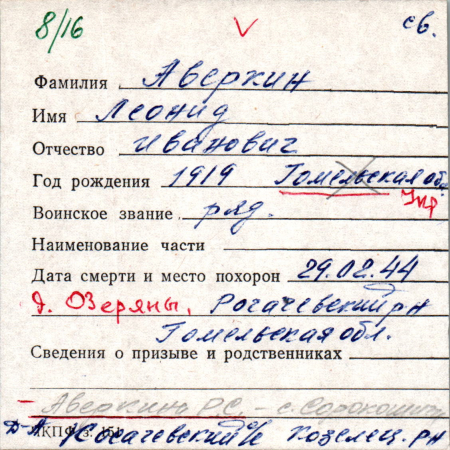 8/16 св.
Фамилия Аверкин
Имя Леонид
Отчество Иванович
Год рождения 1919 Гомельская об.
Укр
Воинское звание ряд.
Наименование части
Дата смерти и место похорон 29.02.44
д. Озеряны, Рогачевский рн
Гомельская обл.
Сведения о призыве и родственниках
Аверкин РС - с. Сорокошичи
Козелец. рн